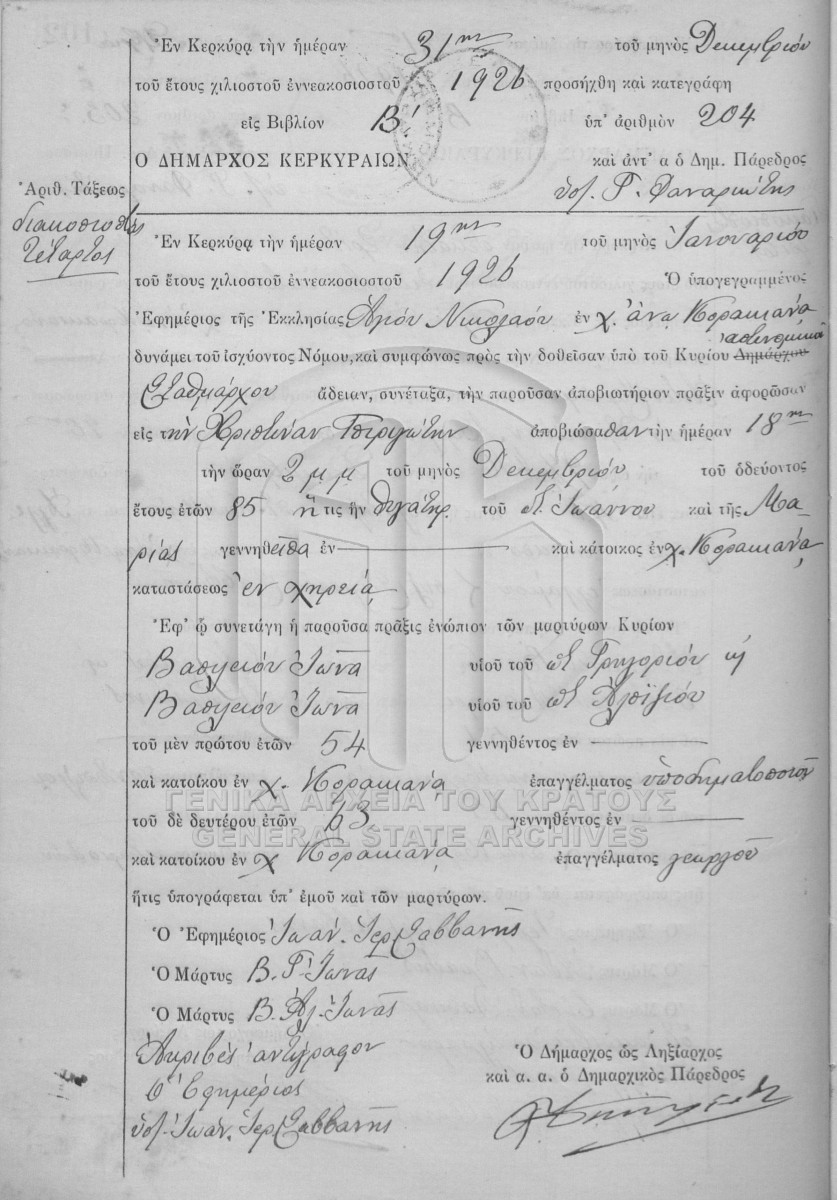 Ἐν Κερκύρᾳ τὴν ἡμέραν 31ην τοῦ μηνὸς Δεκεμβρίου
τοῦ ἔτους χιλιοστοῦ ἐννεακοσιοστοῦ 1926 προσήχθη καὶ κατεγράφη
εἰς Βιβλίον Β' ὑπ' ἀριθμὸν 204
Ο ΔΗΜΑΡΧΟΣ ΚΕΡΚΥΡΑΙΩΝ καὶ ἀντ' α ὁ Δημ. Πάρεδρος
Ἀριθ. Τάξεως
ὑπ. Γ. Φαναριώτης
διακοσιοστὸς
τέταρτος
Ἐν Κερκύρᾳ τὴν ἡμέραν 19ην τοῦ μηνὸς Ἰανουαρίου
τοῦ ἔτους χιλιοστοῦ ἐννεακοσιοστοῦ 1926 Ὁ ὑπογεγραμμένος
Ἐφημέριος τῆς Ἐκκλησίας Ἁγίου Νικολάου ἐν χ. ἄνω Κορακιάνα
ἀστυνομικοῦ
δυνάμει τοῦ ἰσχύοντος Νόμου, καὶ συμφώνως πρὸς τὴν δοθεῖσαν ὑπὸ τοῦ Κυρίου Δημάρχου
Σταθμάρχου ἄδειαν, συνέταξα, τὴν παροῦσαν ἀποβιωτήριον πρᾶξιν ἀφορῶσαν
εἰς τὴν Χριστίναν ἀποβιώσασαν τὴν ἡμέραν 18ην
τὴν ὥραν 2 μ μ τοῦ μηνὸς Δεκεμβρίου τοῦ ὁδεύοντος
ἔτους ἐτῶν 85 ἥτις ἦν θυγάτηρ τοῦ π. Ἰωάννου καὶ τῆς Μα-
ρίας γεννηθεῖσα ἐν καὶ κάτοικος ἐν χ. Κορακιάνα
καταστάσεως ἐν χηρείᾳ
Ἐφ' ᾧ συνετάγη ἡ παροῦσα πρᾶξις ἐνώπιον τῶν μαρτύρων Κυρίων
Βασιλείου Ἰωνᾶ υἱοῦ τοῦ ποτὲ Γρηγορίου ἢ
Βασιλείου Ἰωνᾶ υἱοῦ τοῦ ποτὲ Ἀλοϊσίου
τοῦ μὲν πρώτου ἐτῶν 54 γεννηθέντος ἐν
καὶ κατοίκου ἐν χ. Κορακιάνα ἐπαγγέλματος ὑποδηματοποιοῦ
ΓΕΝΙΚΑ ΑΡΧΕΙΑ ΤΟΥ ΚΡΑΤΟΥΣ
τοῦ δὲ δευτέρου ἐτῶν 63 γεννηθέντος ἐν
GENERAL STATE ARCHIVES
καὶ κατοίκου ἐν χ Κορακιάνα ἐπαγγέλματος γεωργοῦ
ἥτις ὑπογράφεται ὑπ' ἐμοῦ καὶ τῶν μαρτύρων.
Ὁ Ἐφημέριος Ἰωάν. Ἱερ. Σαββανῆς
Ὁ Μάρτυς Β. Γ. Ἰωνᾶς
Ὁ Μάρτυς Β. Ἀλ. Ἰωνᾶς
Ἀκριβὲς ἀντίγραφον
Ὁ Δήμαρχος ὡς Ληξίαρχος
ὁ Ἐφημέριος
καὶ α. α. ὁ Δημαρχικὸς Πάρεδρος
ὑπ. Ἰωάν. Ἱερ. Σαββανῆς